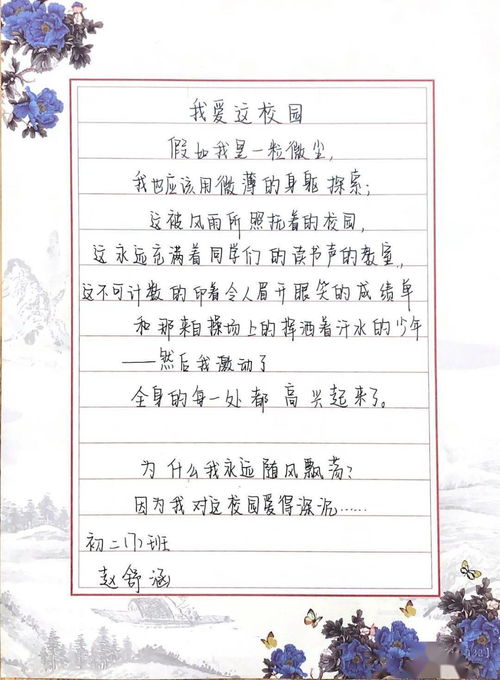 我爱这校园
假如我是一粒微尘，
我也应该用微薄的身躯探索；
这被风雨所照抚着的校园，
这永远充满着同学们的读书声的教室，
这不可计数的印着令人眉开眼笑的成绩单
和那来自操场上的挥洒着汗水的少年
——然后我激动了
全身的每一处都高兴起来了。
为什么我永远随风飘荡？
因为我对这校园爱得深沉……
初二(7)班
赵舒涵